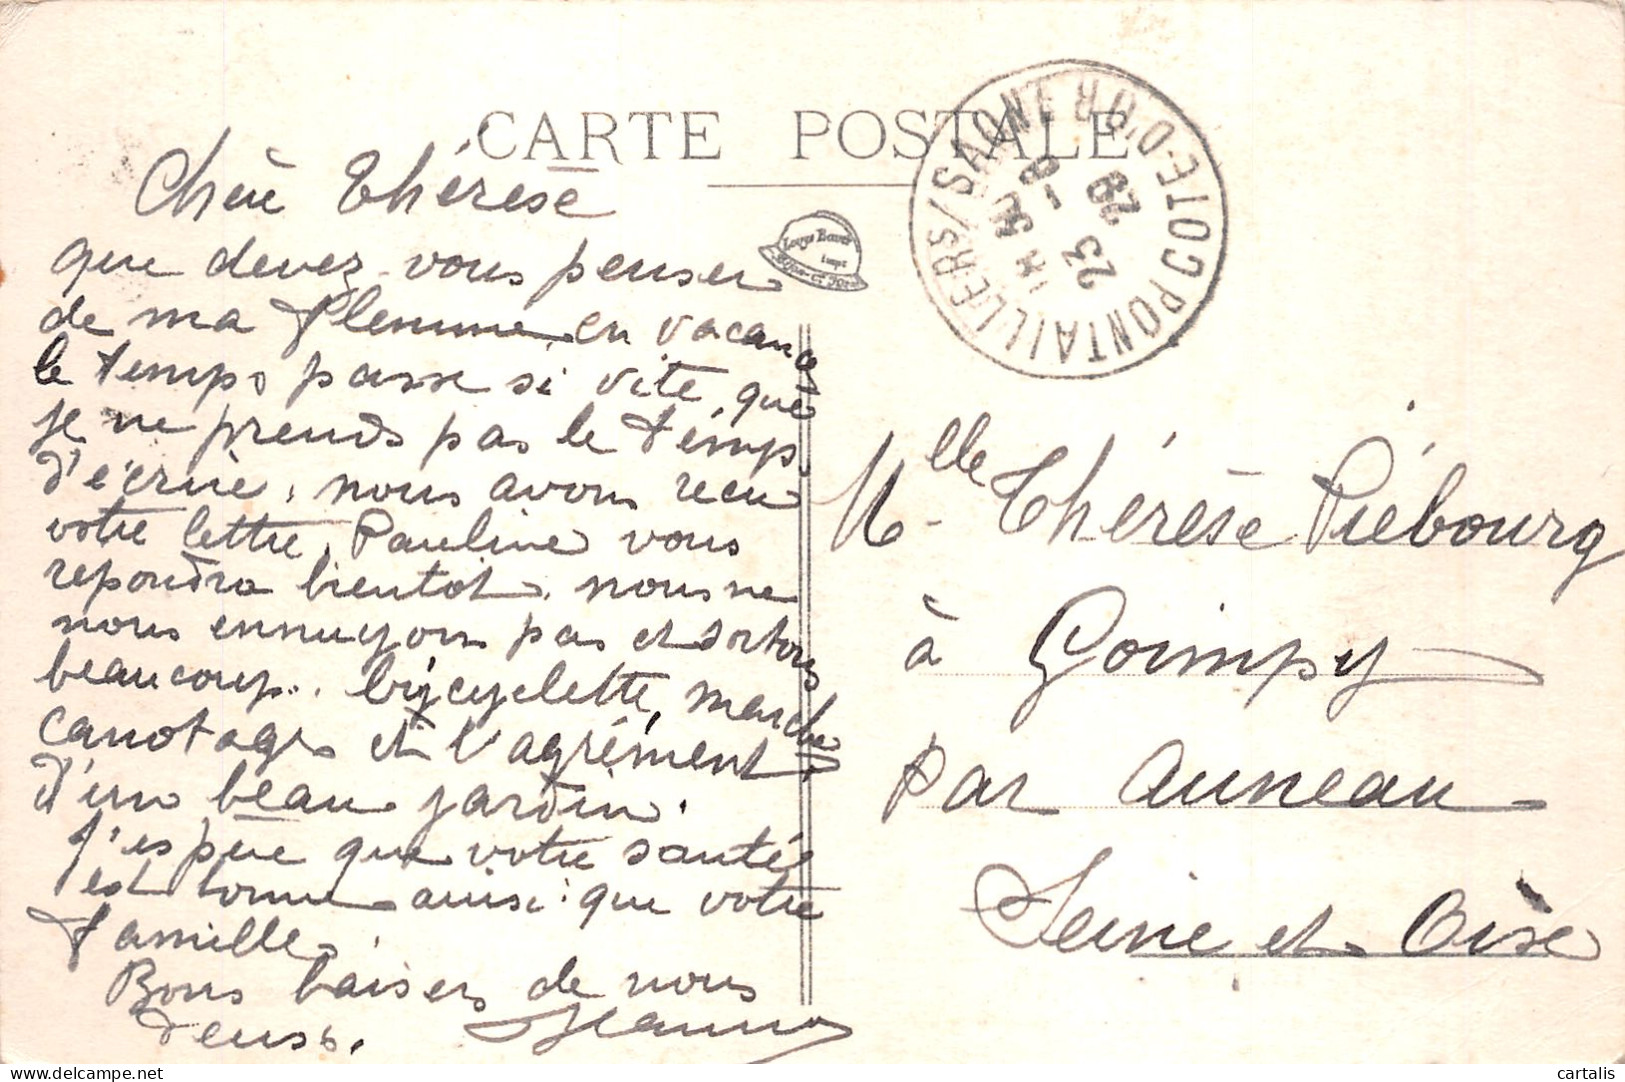 CARTE POSTALE
PONTAILLER S/ SAONE COTE-D'OR
23 - 8
29
Chère Thérèse
que devez-vous penser
de ma flemme, en vacances
le temps passe si vite, que
je ne prends pas le temps
d'écrire, nous avons recu
votre lettre, Pauline vous
repondra bientôt. nous ne
nous ennuyons pas et sortons
beaucoup.. bicyclette, marche
canotage et l'agrément
d'un beau jardin.
J'espère que votre santé
est bonne ainsi que votre
famille.
Bons baisers de nous
deux. Jeanne
Melle Thérèse Piébourg
à Goimpy
par Auneau
Seine et Oise
cartalis